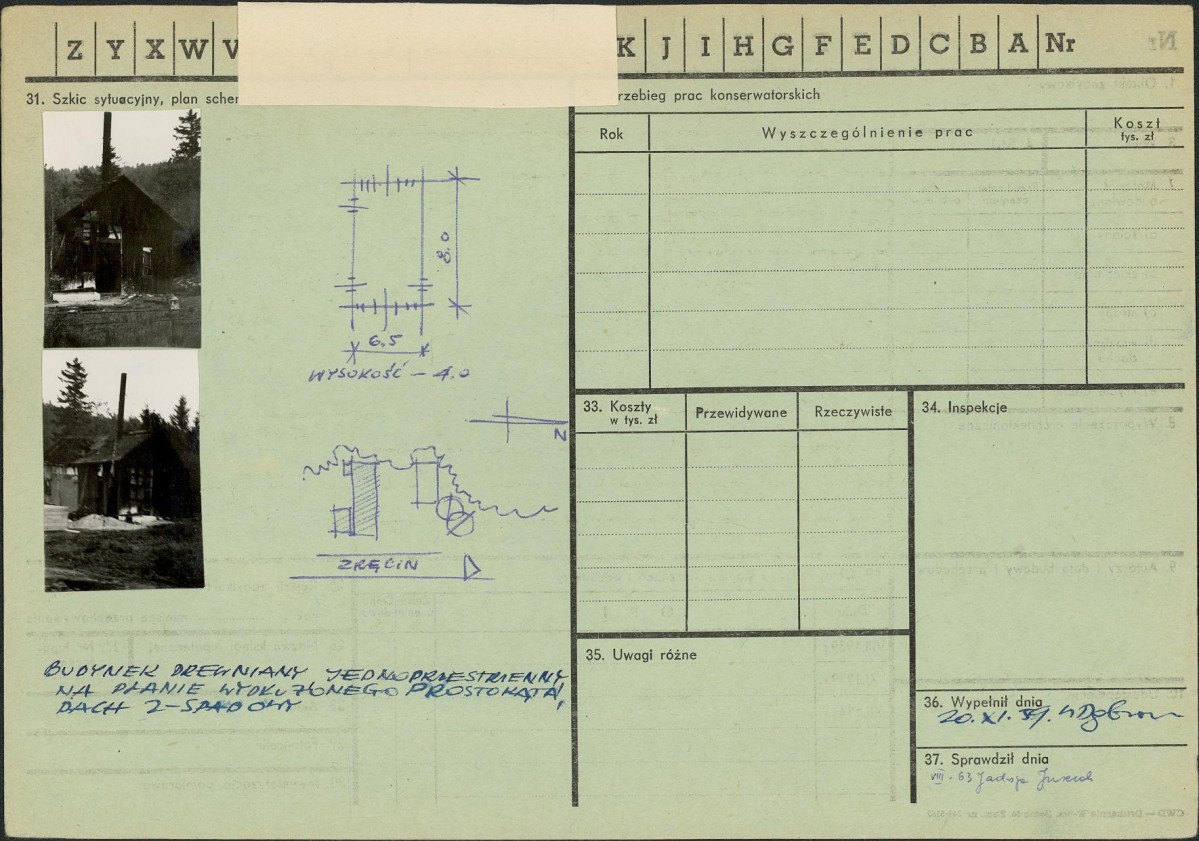 Z Y X W V K J I H G F E D C B A Nr
31. Szkic sytuacyjny, plan schem
rzebieg prac konserwatorskich
Rok
Wyszczególnienie prac
Koszt
tys. zł
8.0
6.5
WYSOKOŚĆ – 4.0
N
ZRĘCIN
BUDYNEK DREWNIANY JEDNOPRZESTRZENNY
NA PLANIE WYDŁUŻONEGO PROSTOKĄTA,
DACH 2-SPADOWY
33. Koszty
w tys. zł
Przewidywane
Rzeczywiste
34. Inspekcje
35. Uwagi różne
36. Wypełnił dnia
20. XI. 59.
37. Sprawdził dnia
VIII - 63 Jadwiga